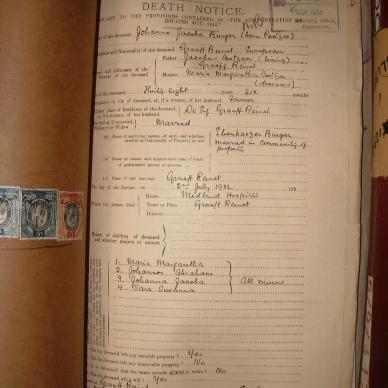 DEATH NOTICE.
PURSUANT TO THE PROVISIONS CONTAINED IN "THE ADMINISTRATION OF ESTATES ACT, 1913."
of the deceased Johanna Jacoba Burger (born Coetzee)
Birthplace and Nationality of the deceased Graaff Reinet European
Names and Addresses of the Parents of the deceased
Father Jacobus Coetzee (living)
Graaff Reinet
Mother Maria Margaretha Coetzee
(deceased)
of the deceased Thirty eight years six months
Occupation in life of deceased, or, if a woman, of her husband Farmer
Ordinary place of Residence of the deceased, or, if a woman, of her husband De Erf Graaff Reinet
Married or Unmarried, Widower or Widow Married
(a) Name of surviving spouse (if any) and whether married in Community of Property or not
Ebenhaezer Burger
married in Community of property
(b) Name or names and approximate date of death of predeceased spouse or spouses
(c) Place of last marriage Graaff Reinet
The day of the decease on 2nd July 1932
Where the person died
House Midland Hospital
Town or Place Graaff Reinet
District
Names of children of deceased and whether majors or minors
1. Maria Margaretha
2. Johannes Abraham
3. Johanna Jacoba
4. Sara Susanna
All minors
Has the deceased left any movable property? Yes
Has the deceased left any immovable property? No
Is it estimated that the estate exceeds £300 in value? No
Has the deceased left a will? Yes
Graaff Reinet